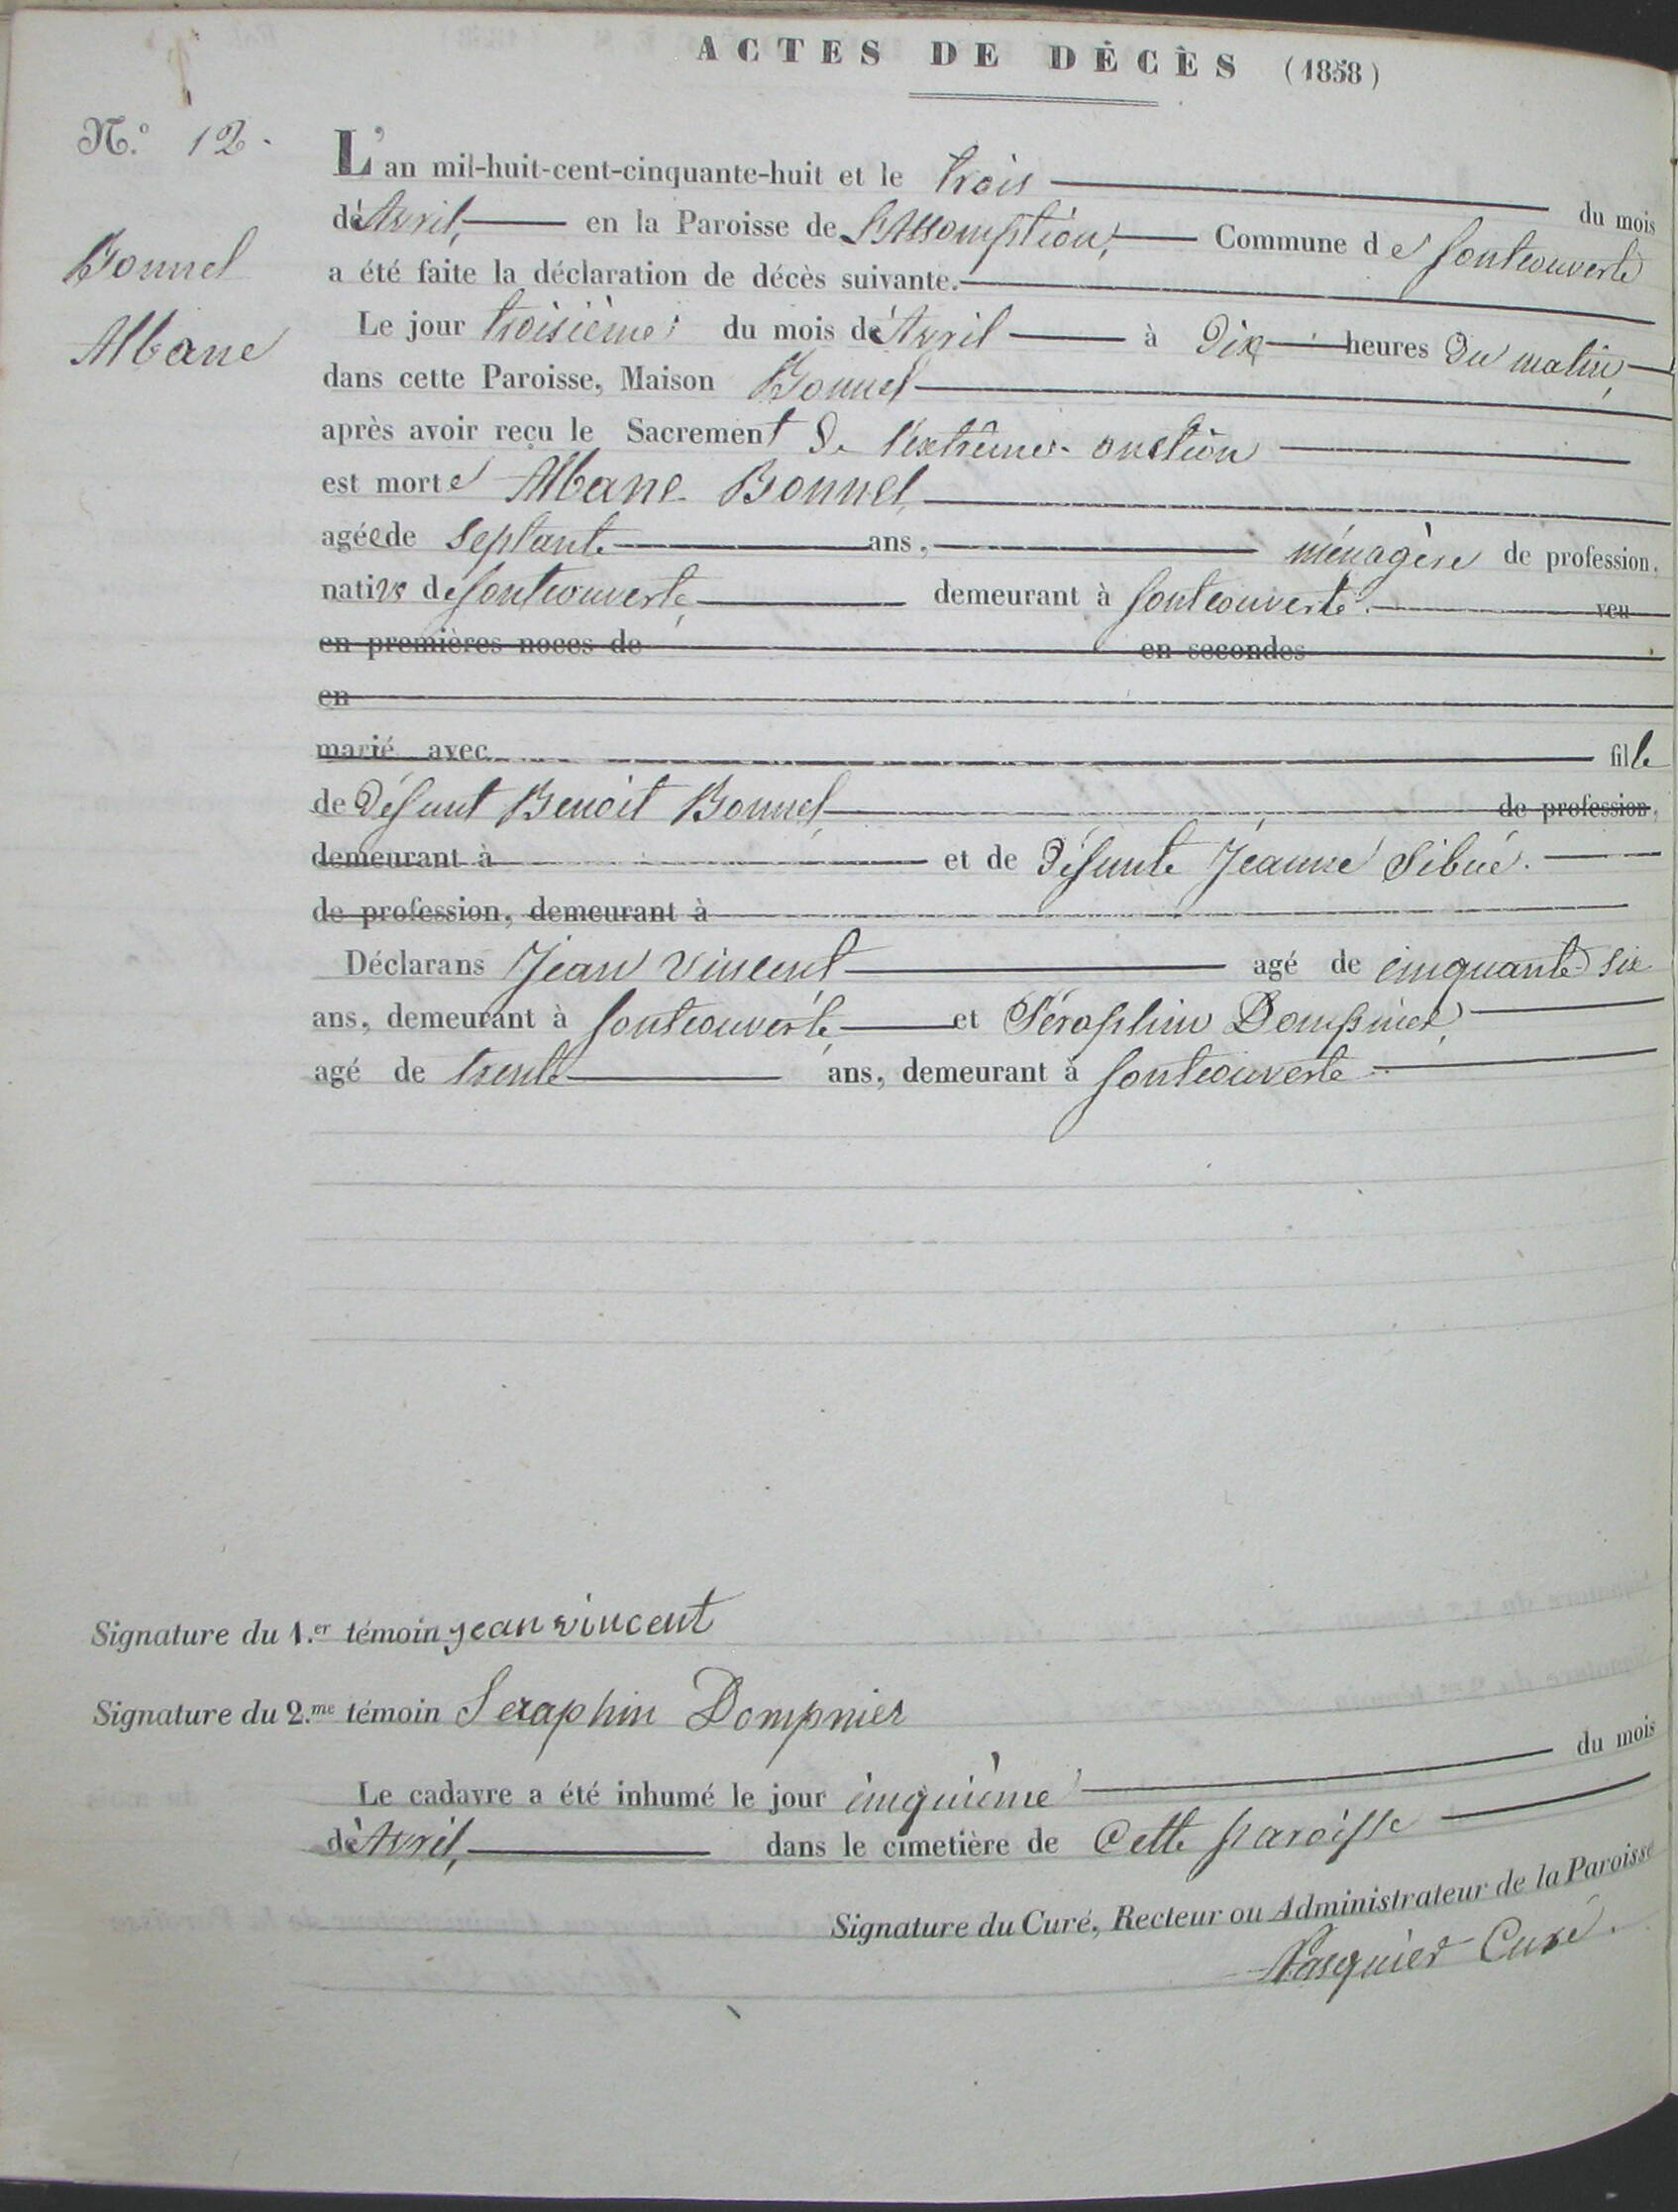 ACTES DE DÉCÈS (1858)
N.º 12.
Bonnel
Albane
L'an mil-huit-cent-cinquante-huit et le trois du mois
d'Avril, en la Paroisse de L'Assomption, Commune de fontcouverte
a été faite la déclaration de décès suivante.
Le jour troisième du mois d'Avril à Dix heures Du matin,
dans cette Paroisse, Maison Bonnel
après avoir reçu le Sacrement De l'extrême-onction
est morte Albane Bonnel,
agée de septante ans, ménagère de profession.
native de fontcouverte, demeurant à fontcouverte. veu
en premières noces de en secondes
en
marié avec fille
de Défunt Benoit Bonnel, de profession,
demeurant à et de Défunte Jeanne Sibué.
de profession, demeurant à
Déclarans Jean Vincent agé de cinquante six
ans, demeurant à fontcouverte, et Séraphin Dompnier,
agé de trente ans, demeurant à fontcouverte
Signature du 1.er témoin jean vincent
Signature du 2.me témoin Seraphin Dompnier
Le cadavre a été inhumé le jour cinquième du mois
d'Avril, dans le cimetière de Cette paroisse
Signature du Curé, Recteur ou Administrateur de la Paroisse
Pasquier Curé.